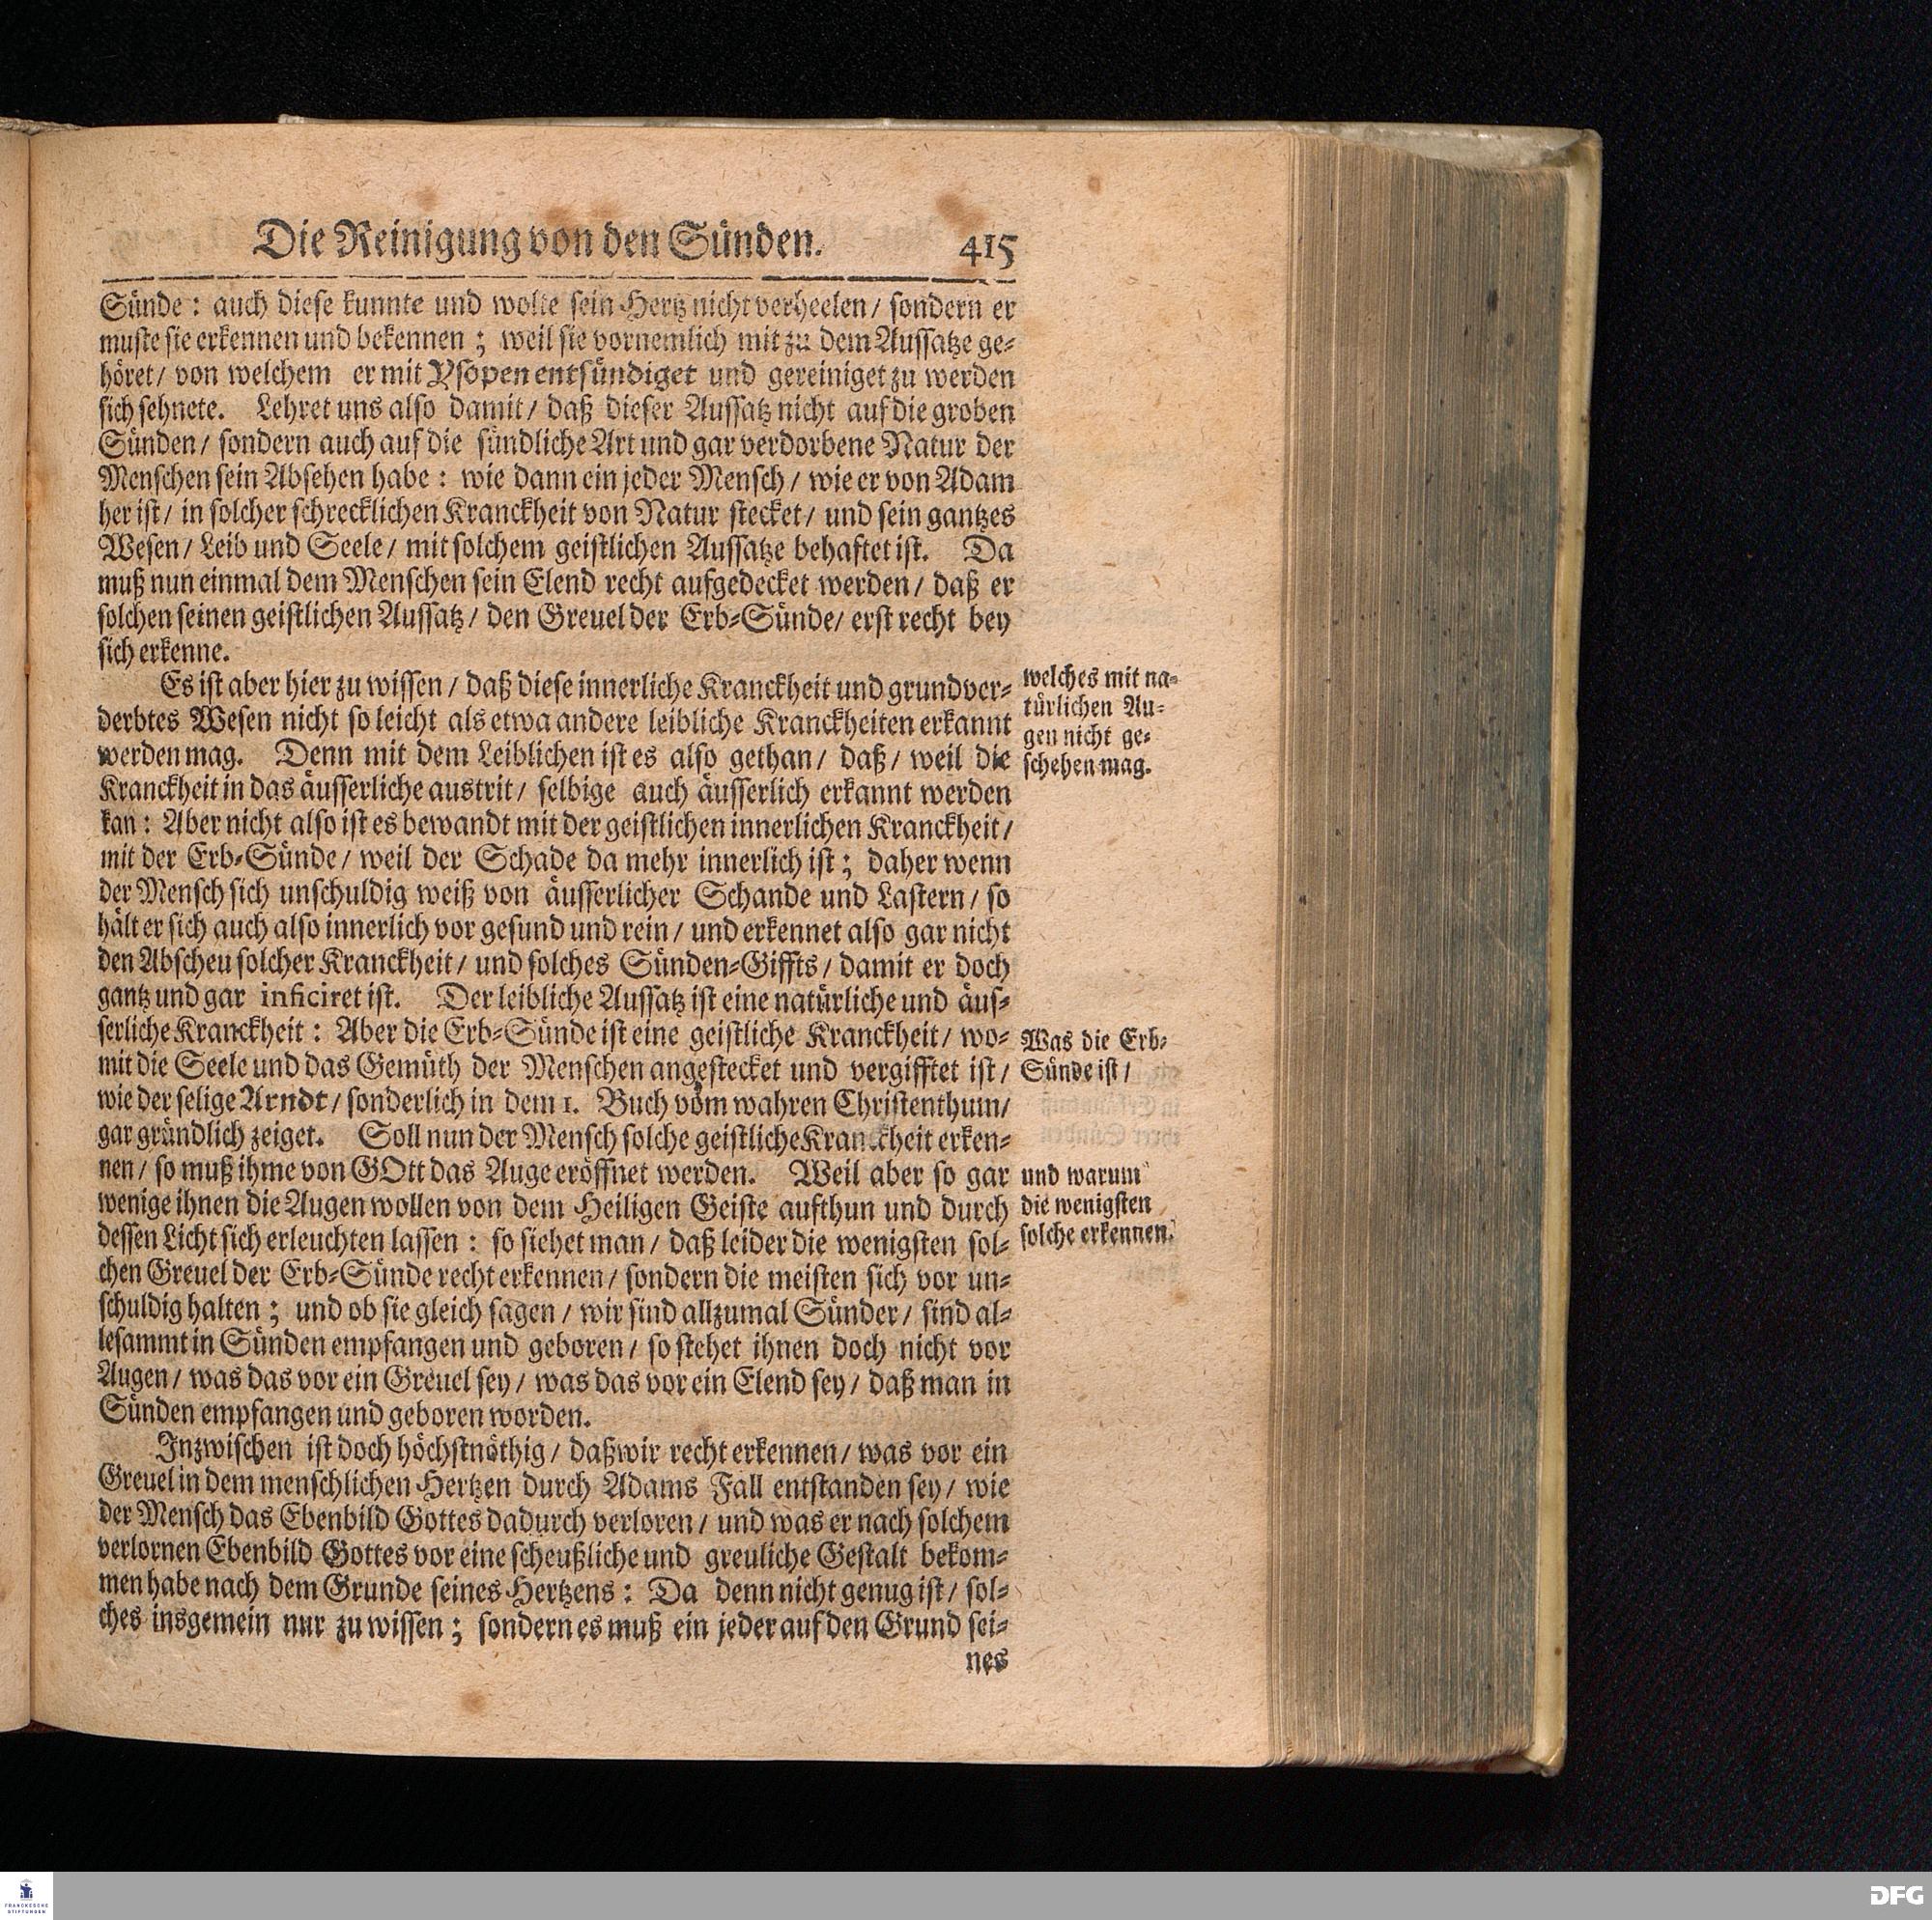 Die Reinigung von den Sünden. 415
Sünde: auch diese kunnte und wolte sein Hertz nicht verheelen/ sondern er
muste sie erkennen und bekennen; weil sie vornemlich mit zu dem Aussatze ge-
höret/ von welchem er mit Ysopen entsündiget und gereiniget zu werden
sich sehnete. Lehret uns also damit/ daß dieser Aussatz nicht auf die groben
Sünden/ sondern auch auf die sündliche Art und gar verdorbene Natur der
Menschen sein Absehen habe: wie dann ein jeder Mensch/ wie er von Adam
her ist/ in solcher schrecklichen Kranckheit von Natur stecket/ und sein gantzes
Wesen/ Leib und Seele/ mit solchem geistlichen Aussatze behaftet ist. Da
muß nun einmal dem Menschen sein Elend recht aufgedecket werden/ daß er
solchen seinen geistlichen Aussatz/ den Greuel der Erb-Sünde/ erst recht bey
sich erkenne.
Es ist aber hier zu wissen/ daß diese innerliche Kranckheit und grundver-
derbtes Wesen nicht so leicht als etwa andere leibliche Kranckheiten erkannt
werden mag. Denn mit dem Leiblichen ist es also gethan/ daß/ weil die
Kranckheit in das äusserliche austrit/ selbige auch äusserlich erkannt werden
kan: Aber nicht also ist es bewandt mit der geistlichen innerlichen Kranckheit/
mit der Erb-Sünde/ weil der Schade da mehr innerlich ist; daher wenn
der Mensch sich unschuldig weiß von äusserlicher Schande und Lastern/ so
hält er sich auch also innerlich vor gesund und rein/ und erkennet also gar nicht
den Abscheu solcher Kranckheit/ und solches Sünden-Giffts/ damit er doch
gantz und gar inficiret ist. Der leibliche Aussatz ist eine natürliche und äus-
serliche Kranckheit: Aber die Erb-Sünde ist eine geistliche Kranckheit/ wo-
mit die Seele und das Gemüth der Menschen angestecket und vergifftet ist/
wie der selige Arndt/ sonderlich in dem 1. Buch vom wahren Christenthum/
gar gründlich zeiget. Soll nun der Mensch solche geistliche Kranckheit erken-
nen/ so muß ihme von GOtt das Auge eröffnet werden. Weil aber so gar
wenige ihnen die Augen wollen von dem Heiligen Geiste aufthun und durch
dessen Licht sich erleuchten lassen: so siehet man/ daß leider die wenigsten sol-
chen Greuel der Erb-Sünde recht erkennen/ sondern die meisten sich vor un-
schuldig halten; und ob sie gleich sagen/ wir sind allzumal Sünder/ sind al-
lesammt in Sünden empfangen und geboren/ so stehet ihnen doch nicht vor
Augen/ was das vor ein Greuel sey/ was das vor ein Elend sey/ daß man in
Sünden empfangen und geboren worden.
Inzwischen ist doch höchstnöthig/ daß wir recht erkennen/ was vor ein
Greuel in dem menschlichen Hertzen durch Adams Fall entstanden sey/ wie
der Mensch das Ebenbild Gottes dadurch verloren/ und was er nach solchem
verlornen Ebenbild Gottes vor eine scheußliche und greuliche Gestalt bekom-
men habe nach dem Grunde seines Hertzens: Da denn nicht genug ist/ sol-
ches insgemein nur zu wissen; sondern es muß ein jeder auf den Grund sei-
nes
welches mit na-
türlichen Au-
gen nicht ge-
schehen mag.
Was die Erb-
Sünde ist/
und warum
die wenigsten
solche erkennen.
FRANCKESCHE
STIFTUNGEN
DFG